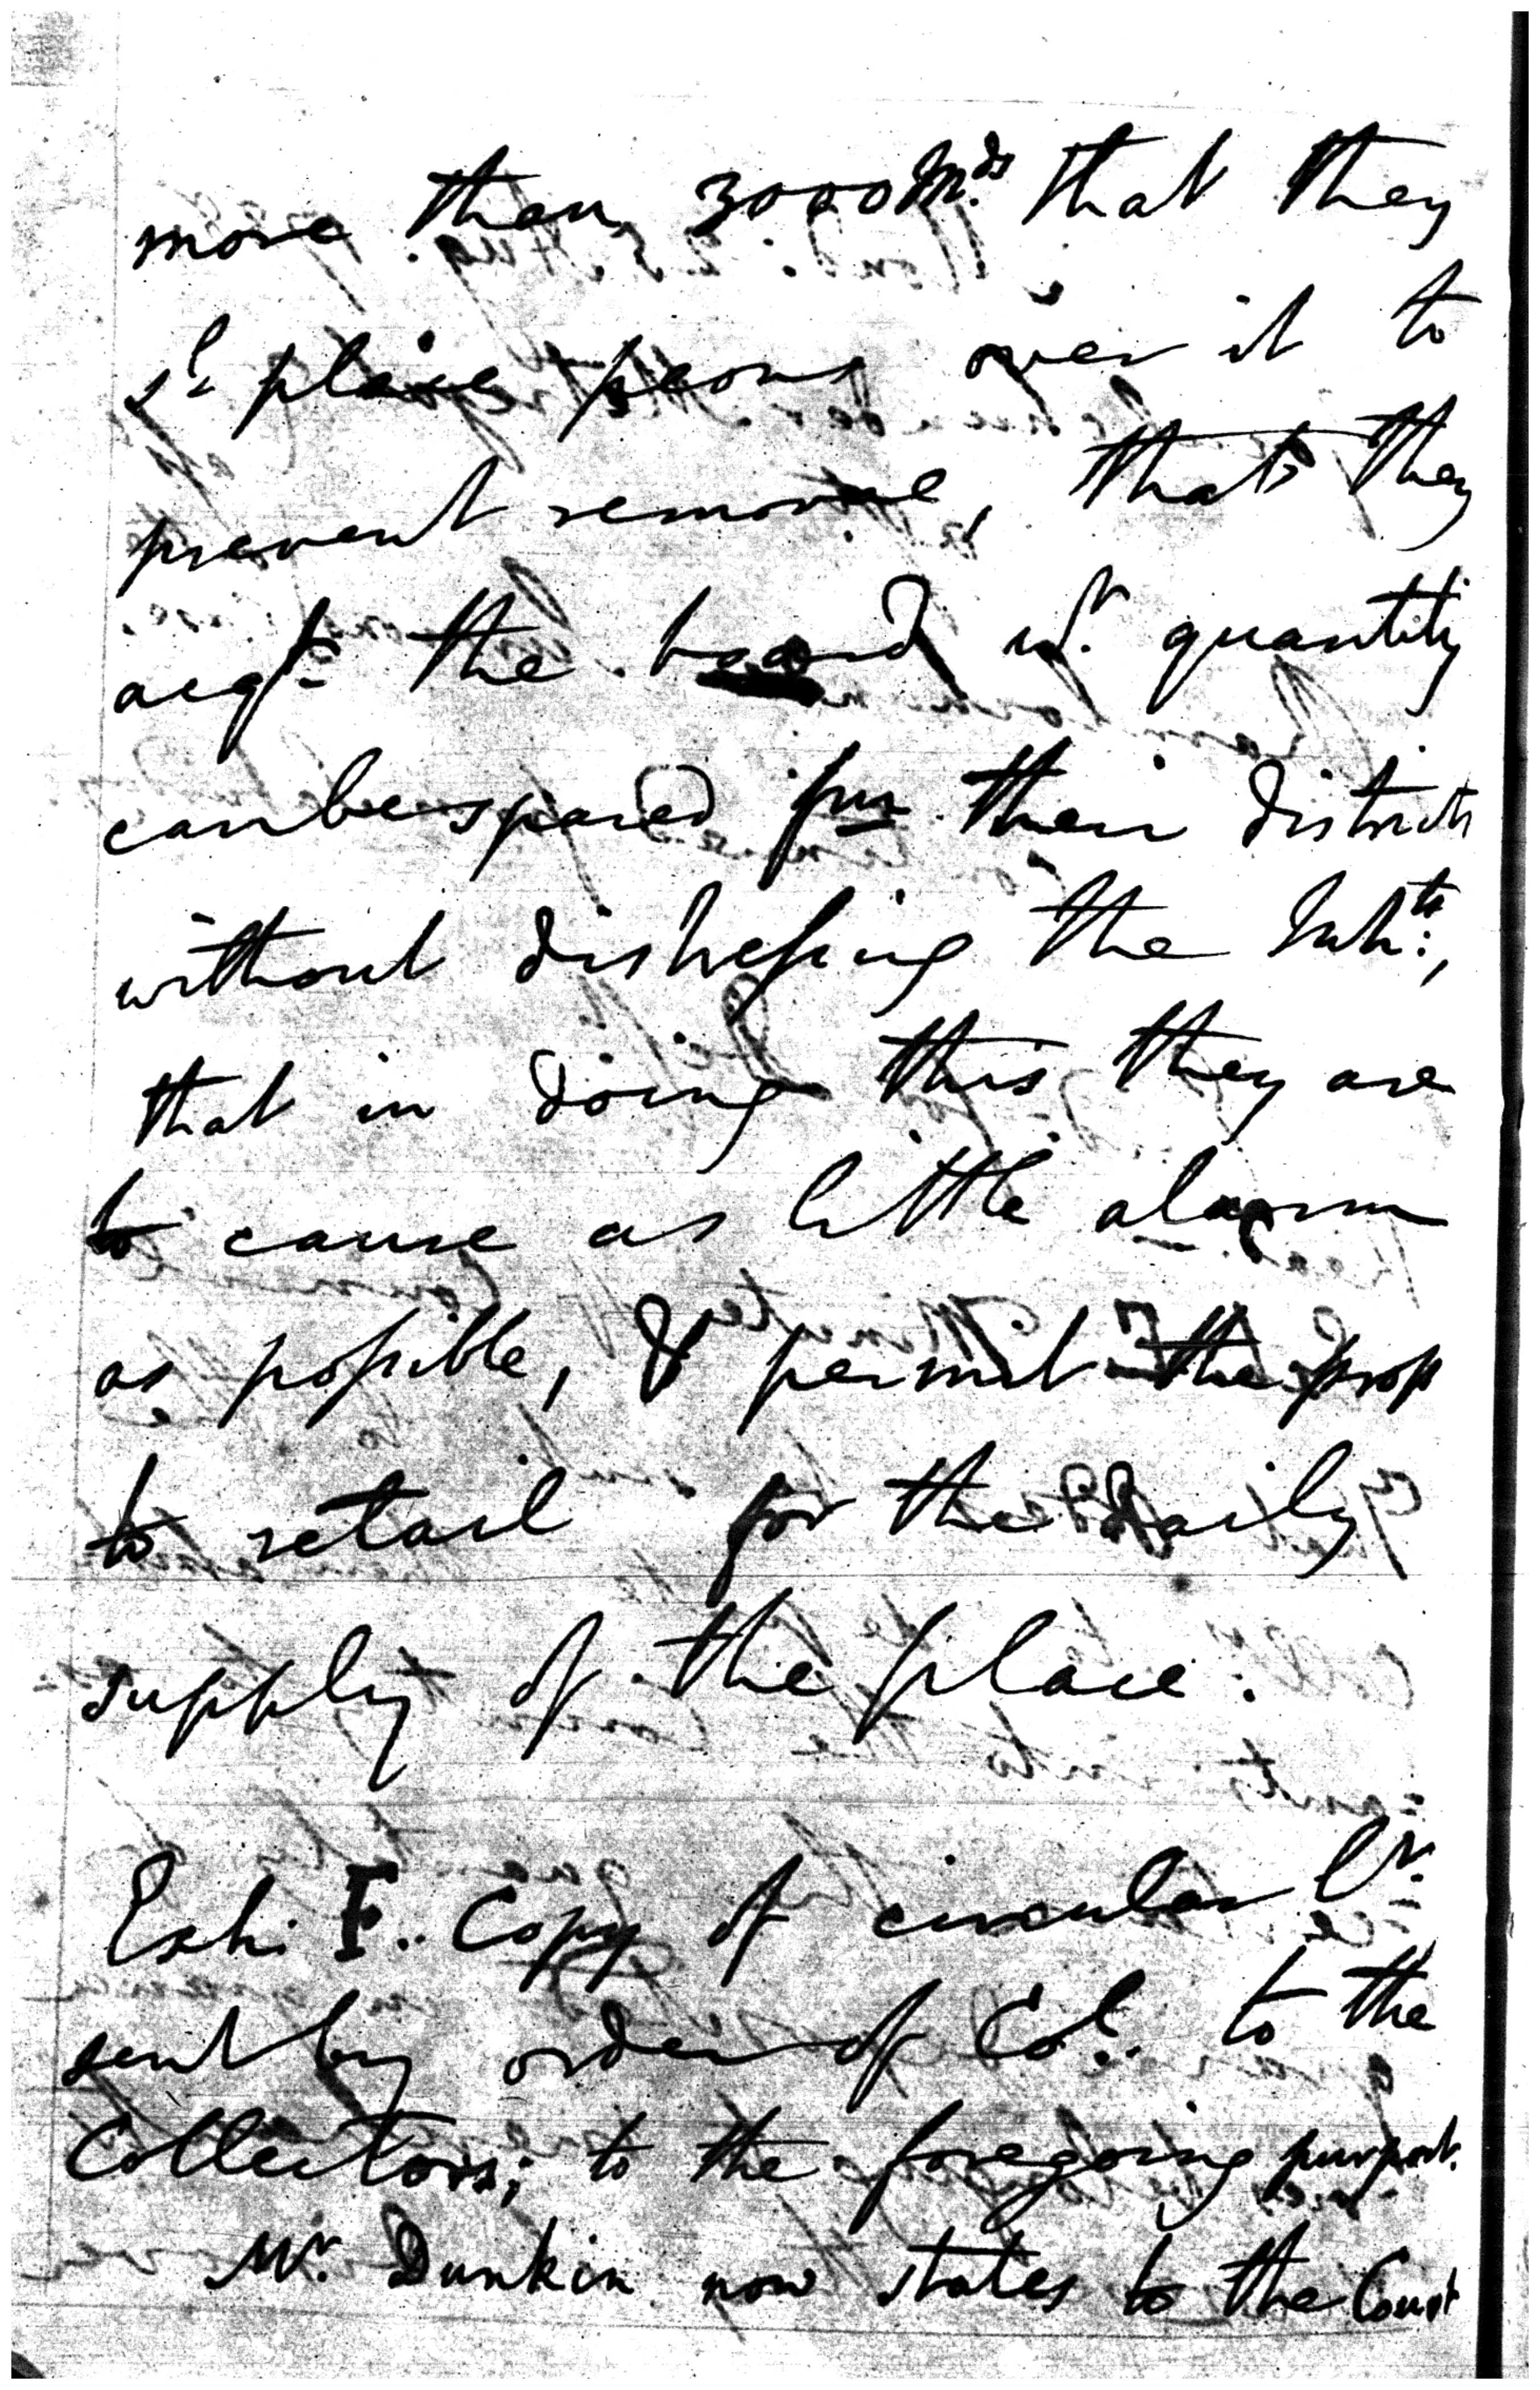 more than 3000 M.ds that they
sd place peons over it to
prevent removal, that they
acqt the board wt. quantity
can be spared fm their districts
without distressing the Inhts:,
that in doing this they are
to cause as little alarm
as possible, & permit the prop
to retail for the daily
supply of the place.
Exhi F.. Copy of circular lr.
sent by order of Col.. to the
Collectors; to the foregoing purport.
Mr. Dunkin now states to the Court